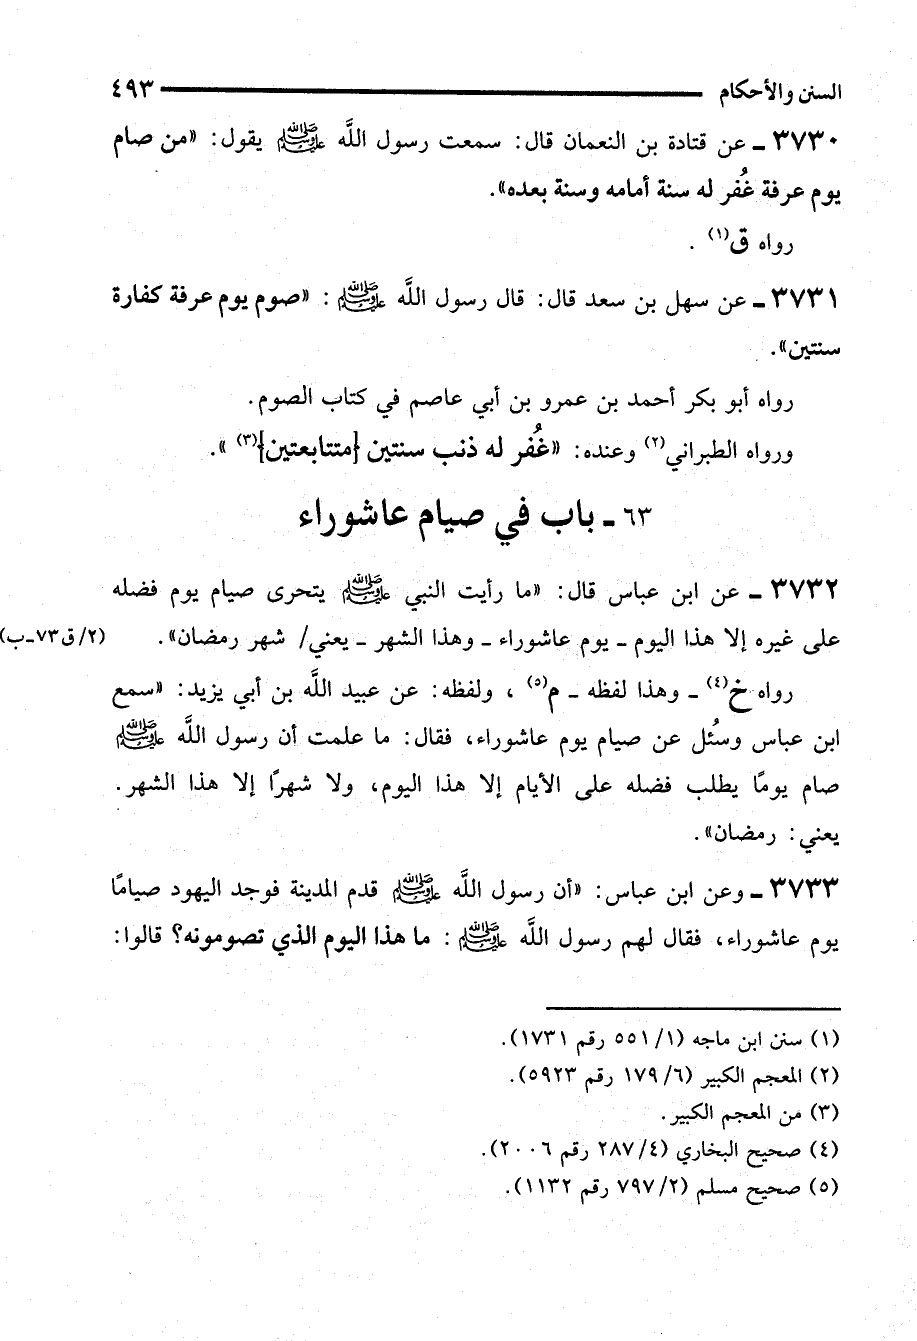 السنن والأحكام ٤٩٣
٣٧٣٠ ـ عن قتادة بن النعمان قال: سمعت رسول اللَّه ﷺ يقول: «من صام
يوم عرفة غُفر له سنة أمامه وسنة بعده».
رواه ق(١) .
٣٧٣١ ـ عن سهل بن سعد قال: قال رسول اللَّه ﷺ : «صوم يوم عرفة كفارة
سنتين».
رواه أبو بكر أحمد بن عمرو بن أبي عاصم في كتاب الصوم.
ورواه الطبراني(٢) وعنده: «غُفر له ذنب سنتين {متتابعتين}(٣) ».
٦٣ ـ باب في صيام عاشوراء
٣٧٣٢ ـ عن ابن عباس قال: «ما رأيت النبي ﷺ يتحرى صيام يوم فضله
على غيره إلا هذا اليوم ـ يوم عاشوراء ـ وهذا الشهر ـ يعني/ شهر رمضان». (٢/ق٧٣ـب)
رواه خ(٤) ـ وهذا لفظه ـ م(٥) ، ولفظه: عن عبيد اللَّه بن أبي يزيد: «سمع
ابن عباس وسُئل عن صيام يوم عاشوراء، فقال: ما علمت أن رسول اللَّه ﷺ
صام يومًا يطلب فضله على الأيام إلا هذا اليوم، ولا شهرًا إلا هذا الشهر.
يعني: رمضان».
٣٧٣٣ ـ وعن ابن عباس: «أن رسول اللَّه ﷺ قدم المدينة فوجد اليهود صيامًا
يوم عاشوراء، فقال لهم رسول اللَّه ﷺ : ما هذا اليوم الذي تصومونه؟ قالوا:
(١) سنن ابن ماجه (١/ ٥٥١ رقم ١٧٣١).
(٢) المعجم الكبير (٦/ ١٧٩ رقم ٥٩٢٣).
(٣) من المعجم الكبير.
(٤) صحيح البخاري (٤/ ٢٨٧ رقم ٢٠٠٦).
(٥) صحيح مسلم (٢/ ٧٩٧ رقم ١١٣٢).